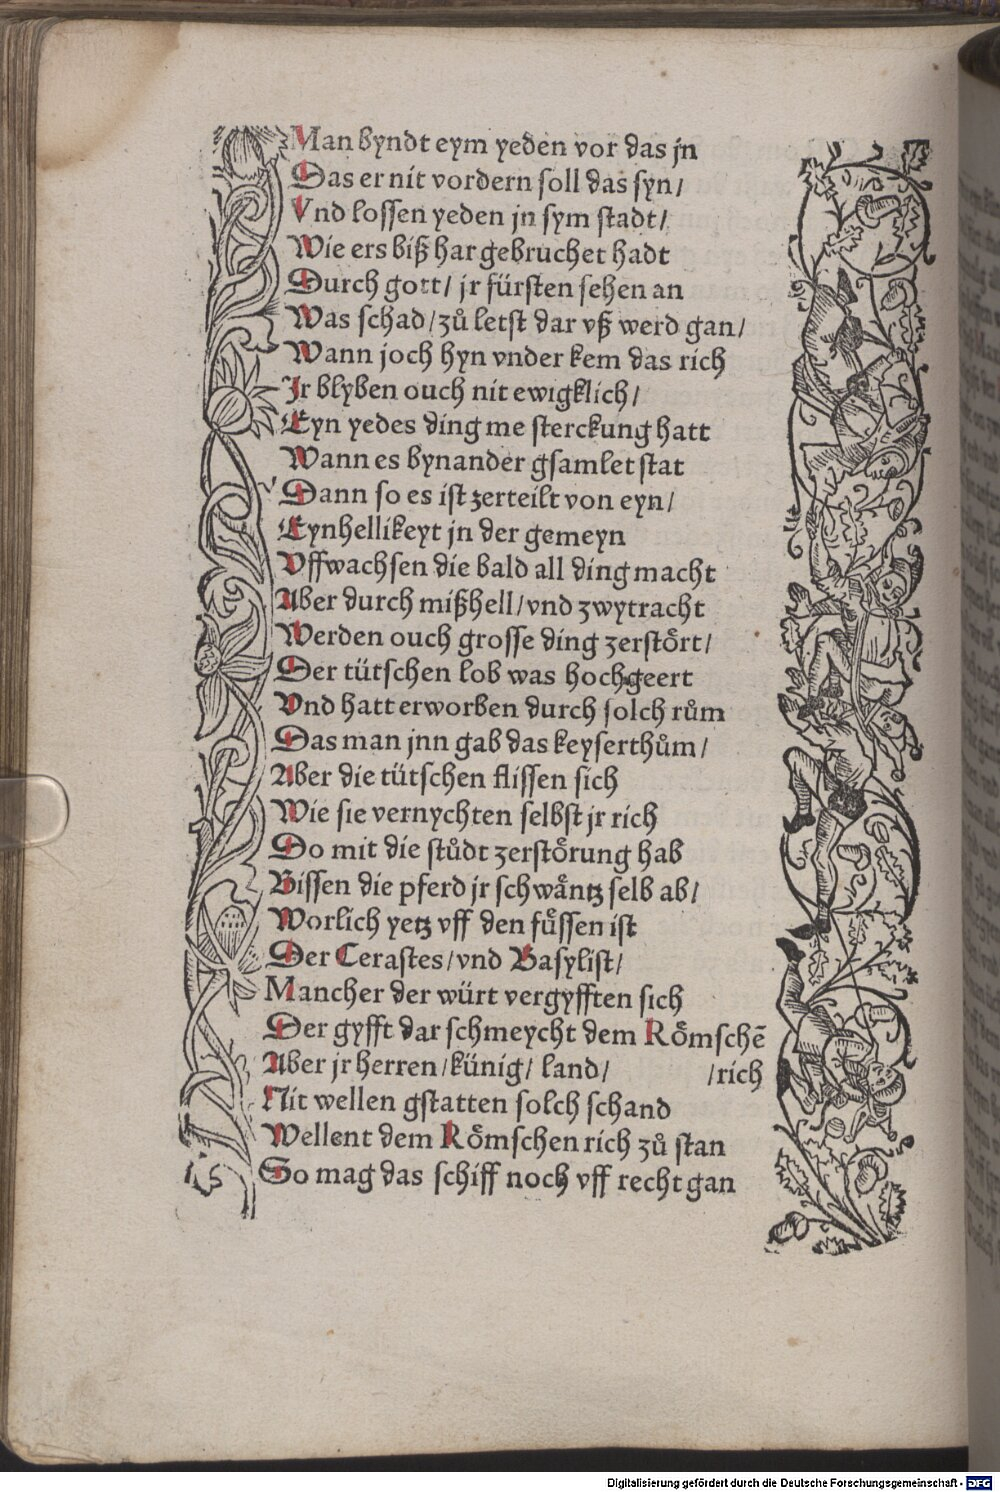 Man byndt eym yeden vor das jn
Das er nit vordern soll das syn/
Vnd lossen yeden jn sym stadt/
Wie ers biß har gebruchet hadt
Durch gott/ jr fürsten sehen an
Was schad/zů letst dar vß werd gan/
Wann joch hyn vnder kem das rich
Ir blyben ouch nit ewigklich/
Eyn yedes ding me sterckung hatt
Wann es bynander gsamlet stat
Dann so es ist zerteilt von eyn/
Eynhellikeyt jn der gemeyn
Uffwachsen die bald all ding macht
Aber durch mißhell/vnd zwytracht
Werden ouch grosse ding zerstoͤrt/
Der tütschen lob was hochgeert
Vnd hatt erworben durch solch rům
Das man jnn gab das keyserthům/
Aber die tütschen flissen sich
Wie sie vernychten selbst jr rich
Do mit die stůdt zerstoͤrung hab
Bissen die pferd jr schwaͤntz selb ab/
Worlich yetz vff den fuͤssen ist
Der Cerastes/vnd Basylist/
Mancher der würt vergyfften sich
Der gyfft dar schmeycht dem Roͤmschẽ
Aber jr herren/künig/ land/ /rich
Nit wellen gstatten solch schand
Wellent dem Roͤmschen rich zů stan
So mag das schiff noch vff recht gan
Digitalisierung gefördert durch die Deutsche Forschungsgemeinschaft - DFG